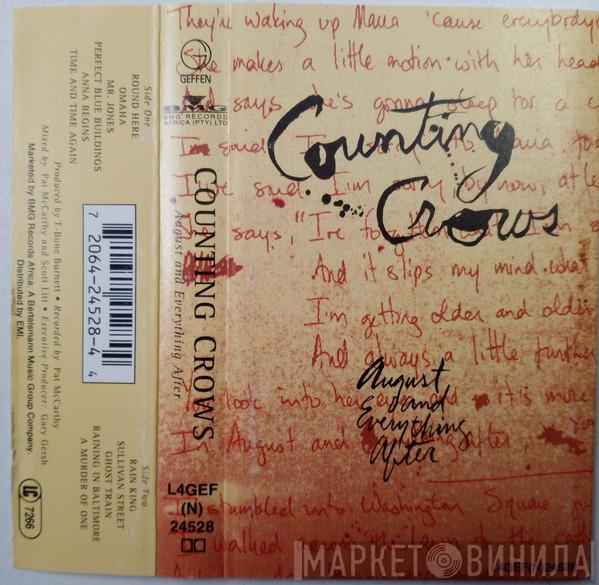 Side One
ROUND HERE
OMAHA
MR. JONES
PERFECT BLUE BUILDINGS
ANNA BEGINS
TIME AND TIME AGAIN
Produced by T-Bone Burnett • Recorded by Pat McCarthy
Mixed by Pat McCarthy and Scott Litt • Executive Producer: Gary Gersh
Marketed by BMG Records Africa. A Bertelsmann Music Group Company.
Distributed by EMI.
7 2064-24528-4 4
Side Two
RAIN KING
SULLIVAN STREET
GHOST TRAIN
RAINING IN BALTIMORE
A MURDER OF ONE
LC 7266
GEFFEN
BMG
BMG RECORDS
AFRICA (PTY) LTD
COUNTING CROWS
August and Everything After
L4GEF
(N)
24528
They're waking up Maria 'cause everybody
She makes a little motion with her head
And says he's gonna sleep for a
I'm said
I've said I'm sorry by now, at le
says, "I've
And it slips my mind what
I'm getting older and older
And always a little further
look into her it's more
In August and after
I stumbled into Washington Square
walked
Counting
Crows
August
and
Everything
After
L4GEF(N)24528
МАРКЕТ ВИНИЛА